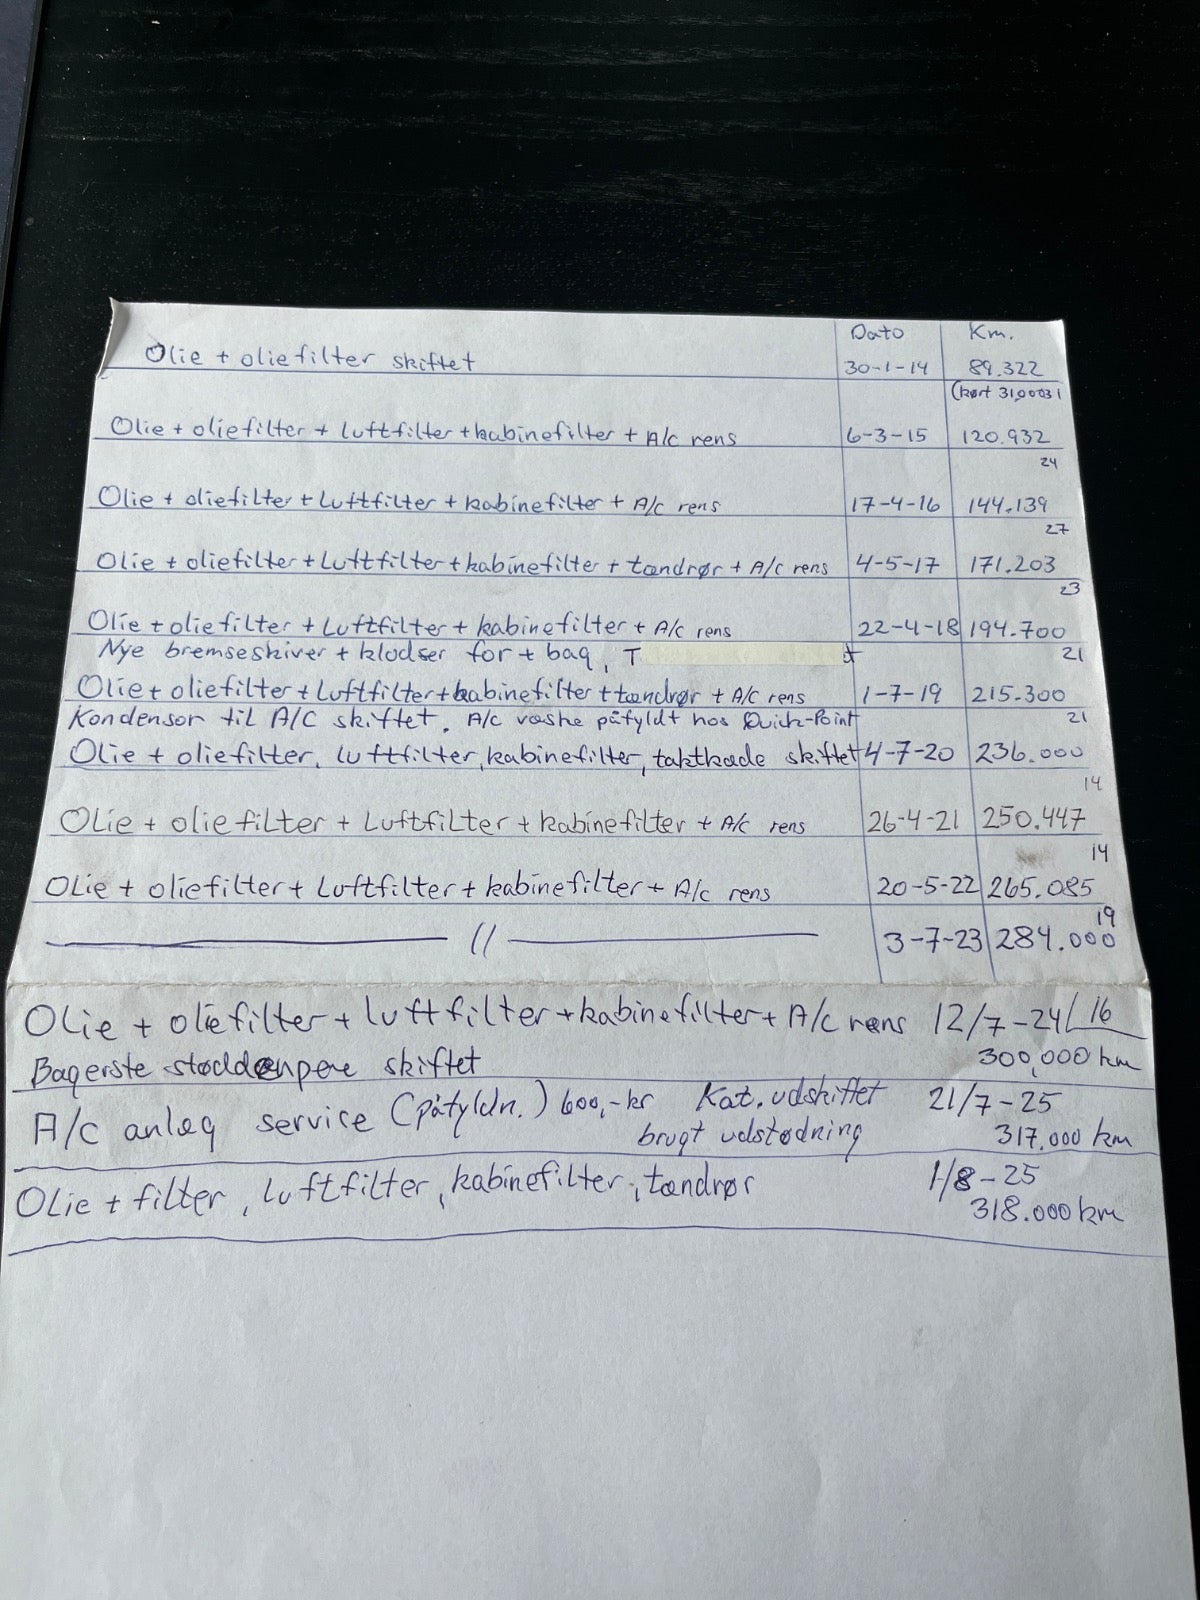 Dato Km.
Olie + oliefilter skiftet 30-1-14 89.322
(kørt 31,000
Olie + oliefilter + Luftfilter + kabinefilter + A/c rens 6-3-15 120.932
24
Olie + oliefilter + Luftfilter + kabinefilter + A/c rens 17-4-16 144.139
27
Olie + oliefilter + Luftfilter + kabinefilter + tændrør + A/c rens 4-5-17 171.203
23
Olie + oliefilter + Luftfilter + kabinefilter + A/c rens 22-4-18 194.700
Nye bremseskiver + klodser for + bag, T t 21
Olie + oliefilter + Luftfilter + kabinefilter + tændrør + A/c rens 1-7-19 215.300
Kondensor til A/C skiftet. A/C væske påfyldt hos Quick-Point 21
Olie + oliefilter, luftfilter, kabinefilter, taktkæde skiftet 4-7-20 236.000
14
Olie + oliefilter + Luftfilter + kabinefilter + A/c rens 26-4-21 250.447
14
Olie + oliefilter + Luftfilter + kabinefilter + A/c rens 20-5-22 265.085
19
— // — 3-7-23 284.000
Olie + oliefilter + luftfilter + kabinefilter + A/c rens 12/7-24 16
Bagerste støddæmpere skiftet 300,000 km
A/c anlæg service (påfyldn.) 600,- kr Kat. udskiftet 21/7-25
brugt udstødning 317.000 km
Olie + filter, luftfilter, kabinefilter, tændrør 1/8-25
318.000 km